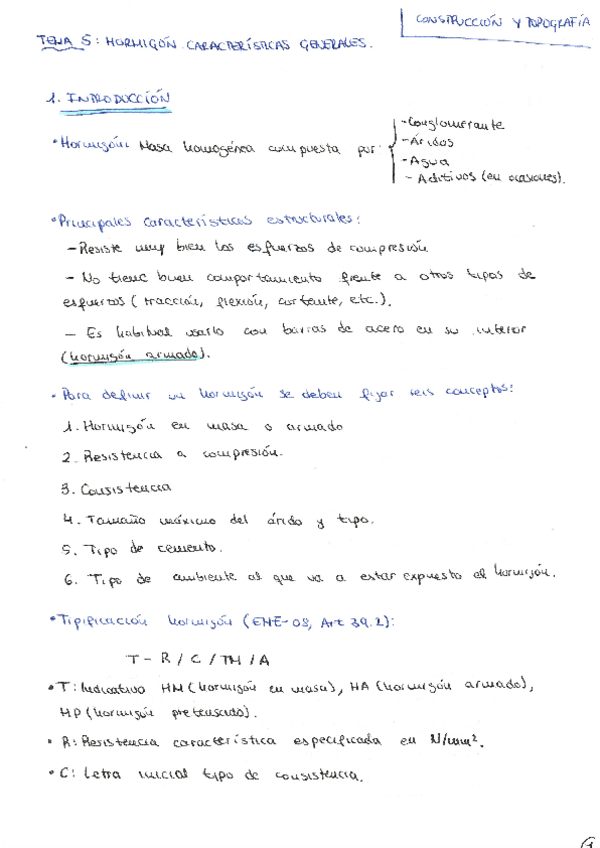 CONSTRUCCIÓN Y TOPOGRAFÍA
TEMA 5: HORMIGÓN. CARACTERÍSTICAS GENERALES.
1. INTRODUCCIÓN
• Hormigón: Masa homogénea compuesta por:
- Conglomerante
- Áridos
- Agua
- Aditivos (en ocasiones).
• Principales características estructurales:
- Resiste muy bien los esfuerzos de compresión
- No tiene buen comportamiento frente a otros tipos de
esfuerzos (tracción, flexión, cortante, etc.).
- Es habitual usarlo con barras de acero en su interior
(hormigón armado).
• Para definir un hormigón se deben fijar seis conceptos:
1. Hormigón en masa o armado
2. Resistencia a compresión.
3. Consistencia
4. Tamaño máximo del árido y tipo.
5. Tipo de cemento.
6. Tipo de ambiente al que va a estar expuesto el hormigón.
• Tipificación hormigón (EHE-08, Art 39.2):
T - R / C / TM / A
• T: Indicativo HM (hormigón en masa), HA (hormigón armado),
HP (hormigón pretensado).
• R: Resistencia característica especificada en N/mm².
• C: Letra inicial tipo de consistencia.
1